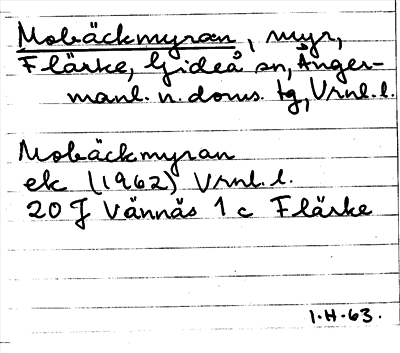 Mobäckmyran, myr,
Flärke, Gideå sn, Ånger-
manl. n. doms. tg, Vrnl. l.
Mobäckmyran
ek (1962) Vrnl. l.
20 J Vännäs 1 c Flärke
1·H·63.